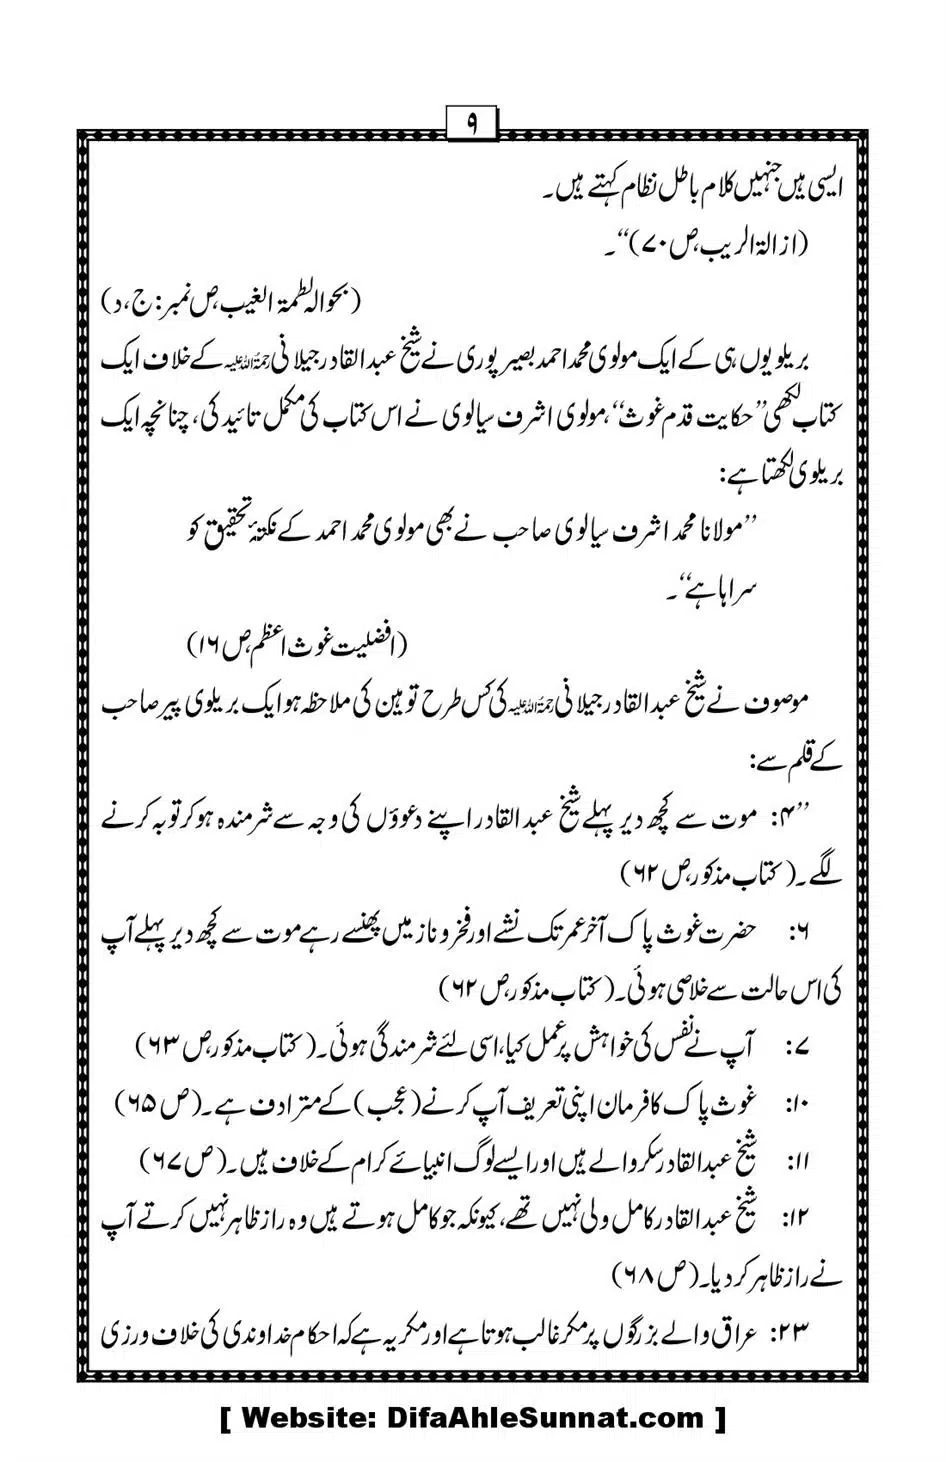 ۹
ایسی ہیں جنہیں کلام باطل نظام کہتے ہیں۔
(ازالۃ الریب،ص۷۰)‘‘۔
(بحوالہ لطمۃ الغیب،ص نمبر:ج،د)
بریلویوں ہی کے ایک مولوی محمد احمد بصیر پوری نے شیخ عبدالقادر جیلانی رحمۃ اللہ علیہ کے خلاف ایک
کتاب لکھی ’’حکایت قدم غوث‘‘، مولوی اشرف سیالوی نے اس کتاب کی مکمل تائید کی، چنانچہ ایک
بریلوی لکھتا ہے:
’’مولانا محمد اشرف سیالوی صاحب نے بھی مولوی محمد احمد کے نکتۂ تحقیق کو
سراہا ہے‘‘۔
(افضلیت غوث اعظم،ص۱۶)
موصوف نے شیخ عبدالقادر جیلانی رحمۃ اللہ علیہ کی کس طرح توہین کی ملاحظہ ہو ایک بریلوی پیر صاحب
کے قلم سے:
’’۴: موت سے کچھ دیر پہلے شیخ عبدالقادر اپنے دعوؤں کی وجہ سے شرمندہ ہو کر توبہ کرنے
لگے۔(کتاب مذکور،ص۶۲)
۶: حضرت غوث پاک آخر عمر تک نشے اور فخر و ناز میں پھنسے رہے موت سے کچھ دیر پہلے آپ
کی اس حالت سے خلاصی ہوئی۔(کتاب مذکور،ص۶۲)
۷: آپ نے نفس کی خواہش پر عمل کیا، اسی لئے شرمندگی ہوئی۔(کتاب مذکور،ص۶۳)
۱۰: غوث پاک کا فرمان اپنی تعریف آپ کرنے (عجب) کے مترادف ہے۔(ص۶۵)
۱۱: شیخ عبدالقادر سکر والے ہیں اور ایسے لوگ انبیائے کرام کے خلاف ہیں۔(ص۶۷)
۱۲: شیخ عبدالقادر کامل ولی نہیں تھے، کیونکہ جو کامل ہوتے ہیں وہ راز ظاہر نہیں کرتے آپ
نے راز ظاہر کر دیا۔(ص۶۸)
۲۳: عراق والے بزرگوں پر مکر غالب ہوتا ہے اور مکر یہ ہے کہ احکام خداوندی کی خلاف ورزی
[ Website: DifaAhleSunnat.com ]